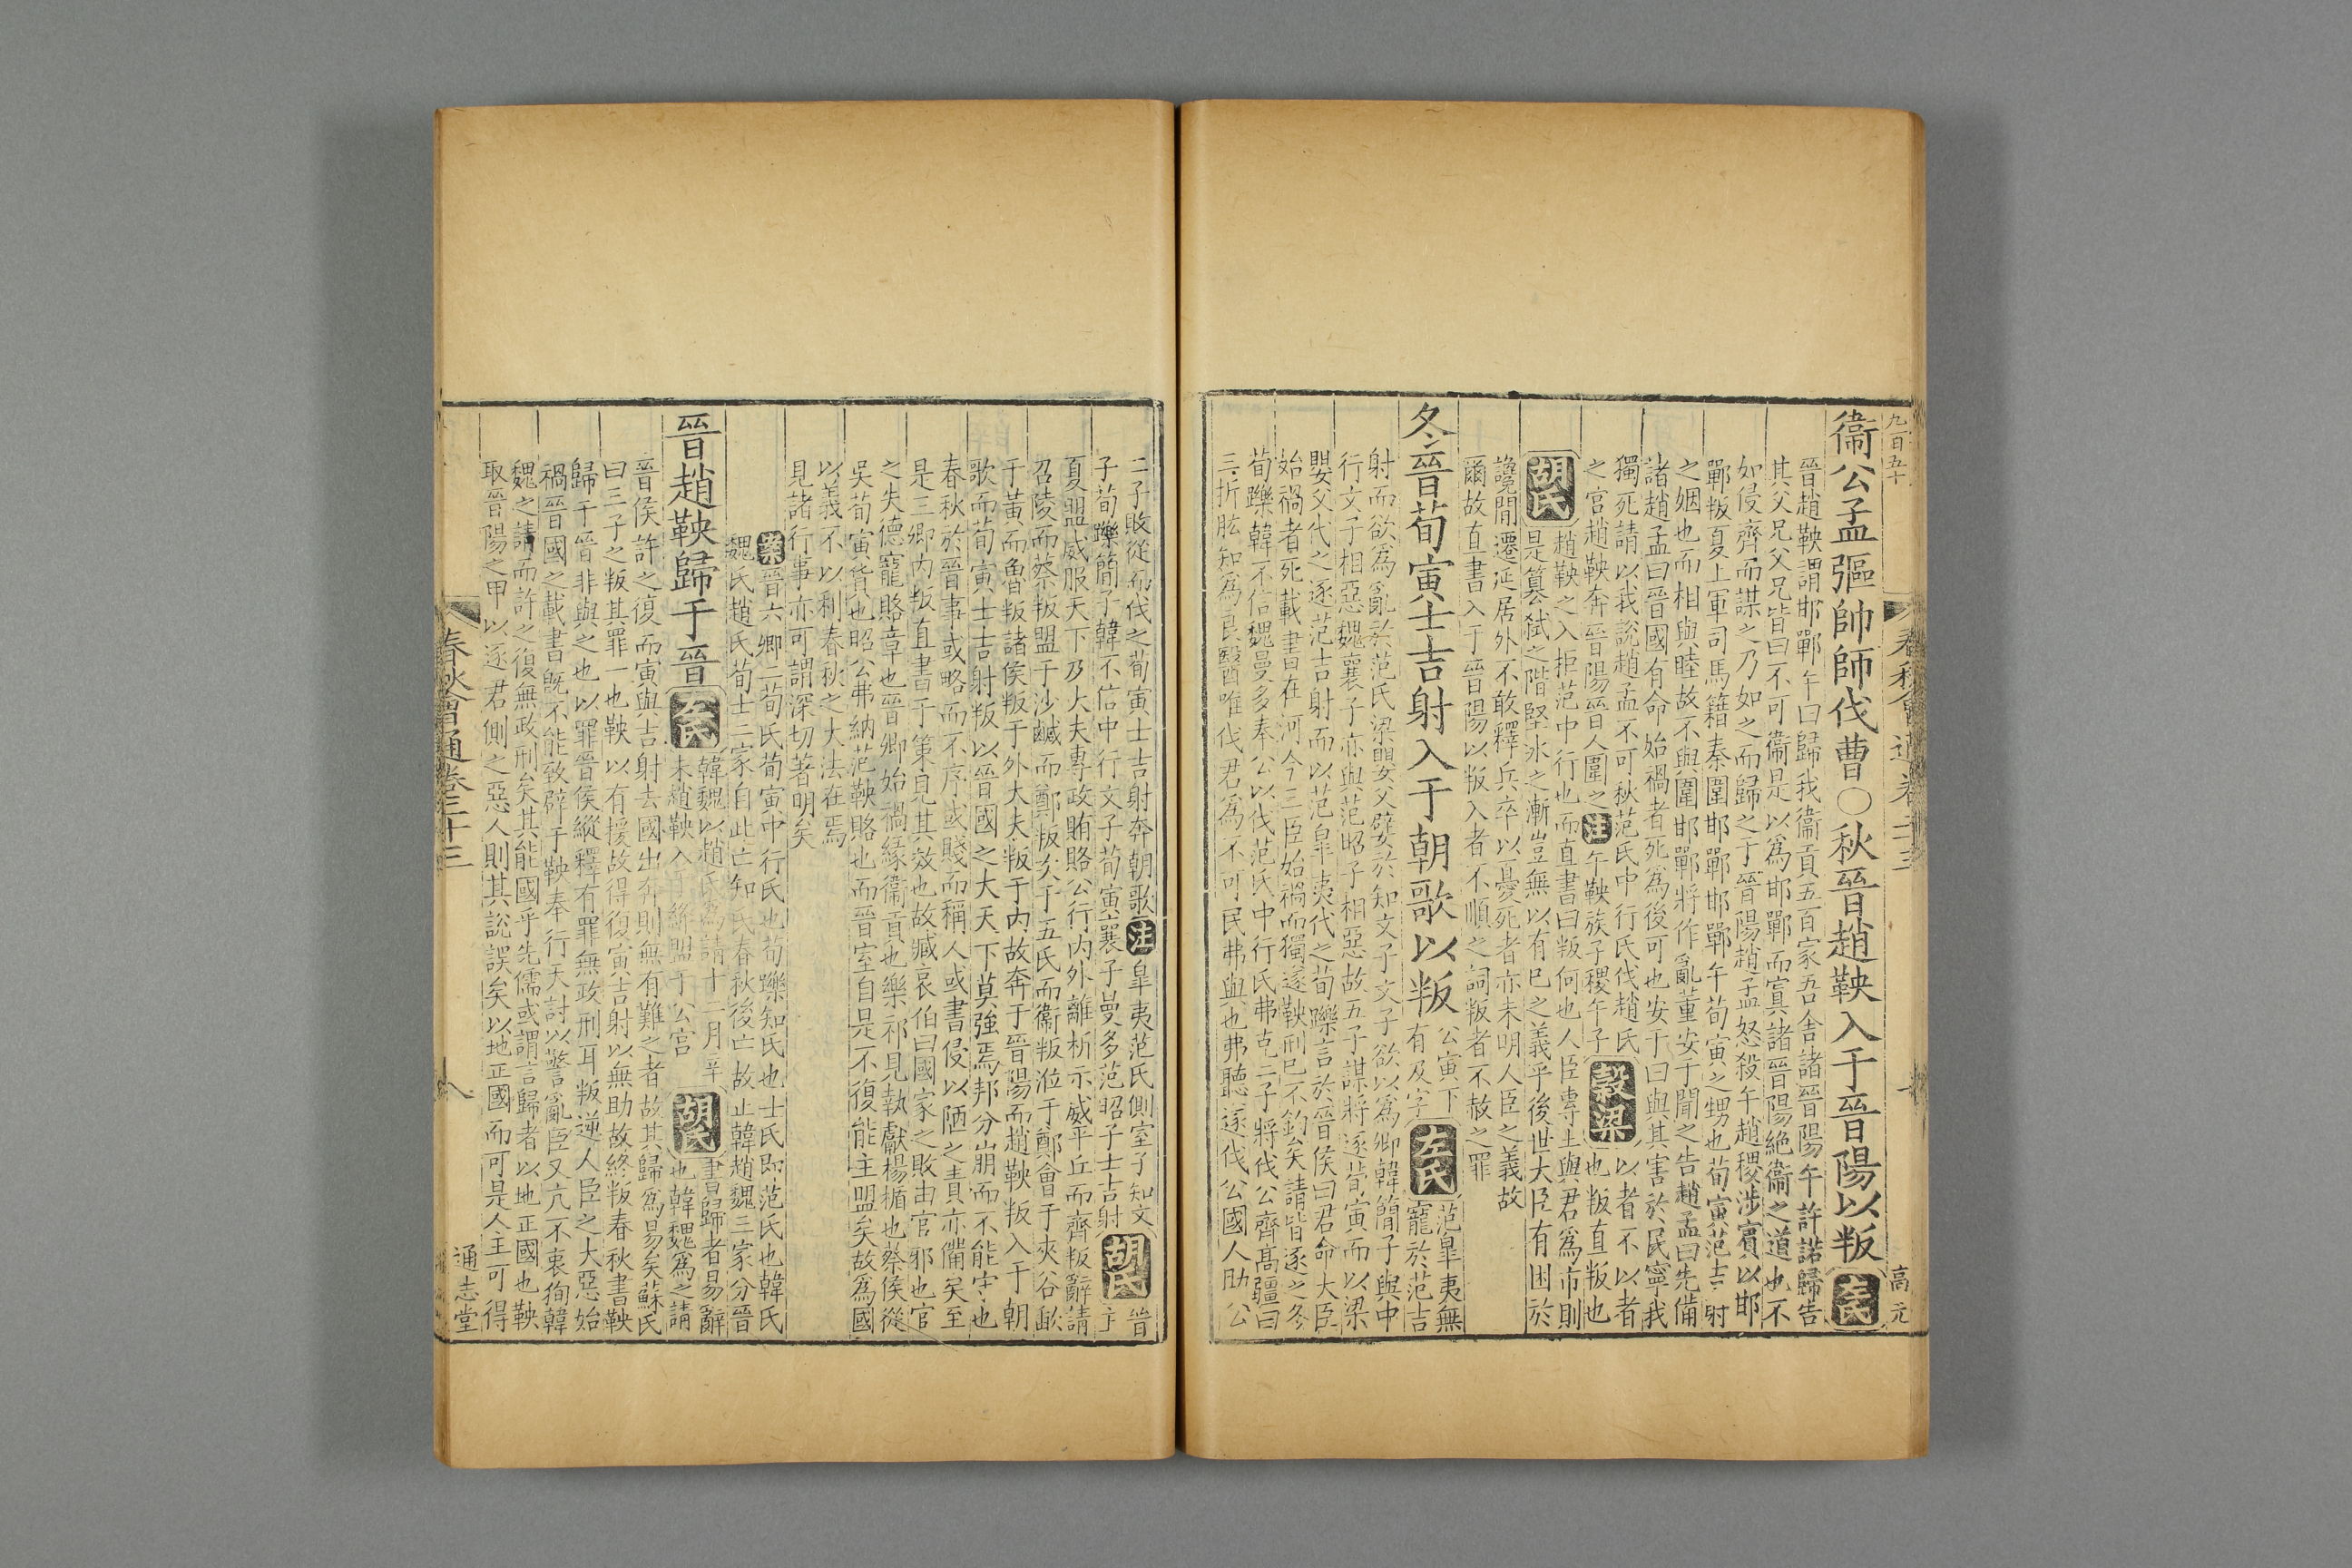 九百五十
高元
衞公孟彄帥師伐曹〇秋晉趙鞅入于晉陽以叛左氏
晉趙鞅謂邯鄲午曰歸我衞貢五百家吾舍諸晉陽午許諾歸告
其父兄父兄皆曰不可衞是以爲邯鄲而寘諸晉陽絶衞之道也不
如侵齊而謀之乃如之而歸之于晉陽趙孟怒殺午趙稷涉賓以邯
鄲叛夏上軍司馬籍秦圍邯鄲邯鄲午荀寅之甥也荀寅范吉射
之姻也而相與睦故不與圍邯鄲將作亂董安于聞之告趙孟曰先備
諸趙孟曰晉國有命始禍者死爲後可也安于曰與其害於民寧我
獨死請以我說趙孟不可秋范氏中行氏伐趙氏
之宫趙鞅奔晉陽晉人圍之注午鞅族子稷午子
穀梁
以者不以者
也叛直叛也
胡氏
趙鞅之入拒范中行也而直書曰叛何也人臣專土與君爲市則
是簒弑之階堅冰之漸豈無以有已之義乎後世大臣有困於
讒間遷延居外不敢釋兵卒以憂死者亦未明人臣之義故
爾故直書入于晉陽以叛入者不順之詞叛者不赦之罪
冬晉荀寅士吉射入于朝歌以叛
公寅下
有及字
左氏
范皐夷無
寵於范吉
射而欲爲亂於范氏梁嬰父嬖於知文子文子欲以爲卿韓簡子與中
行文子相惡魏襄子亦與范昭子相惡故五子謀將逐荀寅而以梁
嬰父代之逐范吉射而以范皐夷代之荀躒言於晉侯曰君命大臣
始禍者死載書在河今三臣始禍而獨逐鞅刑已不鈞矣請皆逐之冬
荀躒韓不信魏曼多奉公以伐范氏中行氏弗克二子將伐公齊髙彊曰
三折肱知爲良醫唯伐君爲不可民弗與也弗聽遂伐公國人助公
二子敗從而伐之荀寅士吉射奔朝歌注皐夷范氏側室子知文
子荀躒簡子韓不信中行文子荀寅襄子曼多范昭子士吉射胡氏
晉
主
夏盟威服天下乃大夫專政賄賂公行内外離析示威平丘而齊叛辭請
召陵而蔡叛盟于沙鹹而鄭叛次于五氏而衞叛涖于鄭會于夾谷歃
于黃而魯叛諸侯叛于外大夫叛于内故奔于晉陽而趙鞅叛入于朝
歌而荀寅士吉射叛以晉國之大天下莫強焉邦分崩而不能守也
春秋於晉事或略而不序或賤而稱人或書侵以陋之責亦備矣至
是三卿内叛直書于策見其效也故臧哀伯曰國家之敗由官邪也官
之失德寵賂章也晉卿始禍緣衞貢也樂祁見執獻楊楯也蔡侯從
吳荀寅貨也昭公弗納范鞅賂也而晉室自是不復能主盟矣故爲國
以義不以利春秋之大法在焉
見諸行事亦可謂深切著明矣
案晉六卿二荀氏荀寅中行氏也荀躒知氏也士氏即范氏也韓氏
魏氏趙氏荀士二家自此亡知氏春秋後亡故止韓趙魏三家分晉
晉趙鞅歸于晉左氏
韓魏以趙氏爲請十二月辛
未趙鞅入于絳盟于公宫
胡氏
書歸者易辭
也韓魏爲之請
晉侯許之復而寅與吉射去國出奔則無有難之者故其歸爲易矣蘇氏
曰三子之叛其罪一也鞅以有援故得復寅吉射以無助故終叛春秋書鞅
歸于晉非與之也以罪晉侯縱釋有罪無政刑耳叛逆人臣之大惡始
禍晉國之載書旣不能致辟于鞅奉行天討以警亂臣又亢不衷徇韓
魏之請而許之復無政刑矣其能國乎先儒或謂言歸者以地正國也鞅
取晉陽之甲以逐君側之惡人則其說誤矣以地正國而可是人主可得
春秋會通卷二十三
八
通志堂